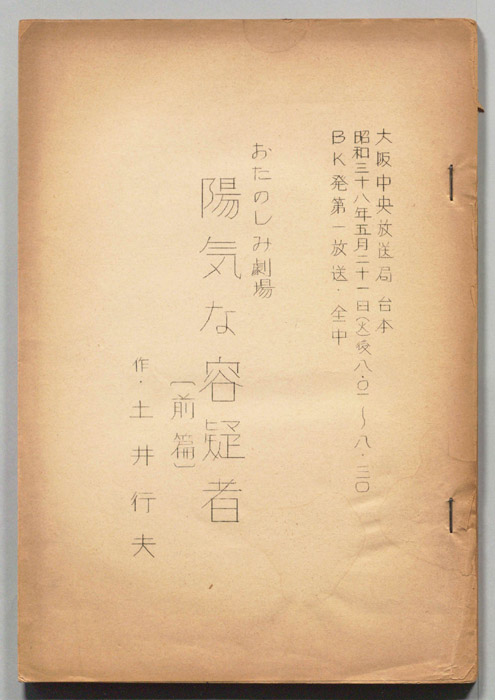 大阪中央放送局 台本
昭和三十八年五月二十一日(火)夜八・〇一〜八・三〇
BK発第一放送・全中
おたのしみ劇場
陽気な容疑者
〔前篇〕
作・土井行夫